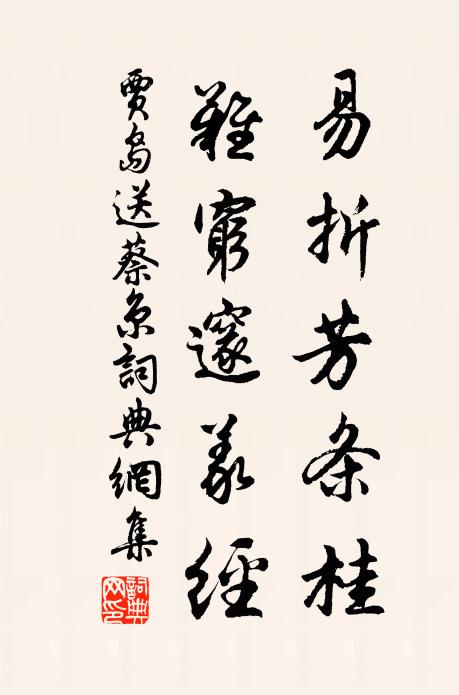 易折芳条桂
難窮邃義經
賈島送蔡京詞典網集
詞典网印